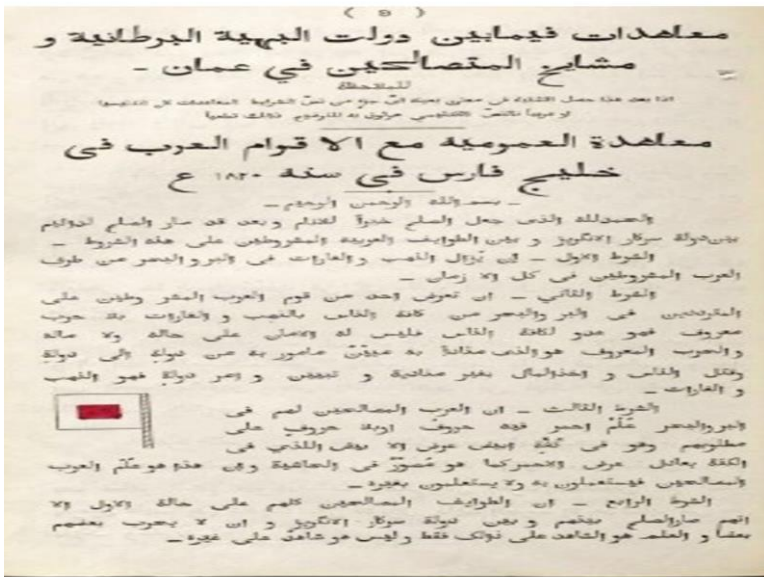 ( ٥ )
معاهدات فيمابين دولت البهية البرطانية و
مشايخ المتصالحين في عمان -
للملاحظة
اذا بعد هذا حصل
معاهدة العمومية مع الا قوام العرب فى
خليج فارس في سنة ١٨٢٠ ع
- بسم الله الرحمن الرحيم -
الحمدلله الذى جعل الصلح خيراً للانام و بعد قد صار الصلح
بين دولة سركار الانگريز و بين الطوايف العربيه المشروطين على هذه الشروط -
الشرط الاول - ان يزال النهب و الغارات فى البر و البحر من طرف
العرب المشروطين فى كل الا زمان -
الشرط الثاني - ان تعرض احد من قوم العرب المشر وطين على
المترددين فى البر والبحر من كافة الناس بالنهب و الغارات بلا حرب
معروف فهو عدو لكافة الناس فليس له الامان على حاله ولا ماله
و الحرب المعروف هو الذى منادىً به مبيّن مامور به من دولة الى دولة
وقتل الناس و اخذ المال بغير مناديه و تبيين و امر دولة فهو النهب
و الغارات -
الشرط الثالث - ان العرب المصالحين لهم فى
البر والبحر علَم احمر فيه حروف اوبلا حروف على
مطلوبهم وهو فى كفّة ابيض عرض الا بيض اللذي فى
الكفة يعادل عرض الاحمر كما هو مُصوّر فى الحاشية وان هذا هو علَم العرب
المصالحين فيستعملون به ولا يستعملون بغيره -
الشرط الرابع - ان الطوايف المصالحين كلهم على حالة الاول الا
انهم صار الصلح بينهم و بين دولة سركار الانگريز و ان لا يحرب بعضهم
بعضاً و العلم هو الشاهد على ذولك فقط وليس هو شاهد على غيره -